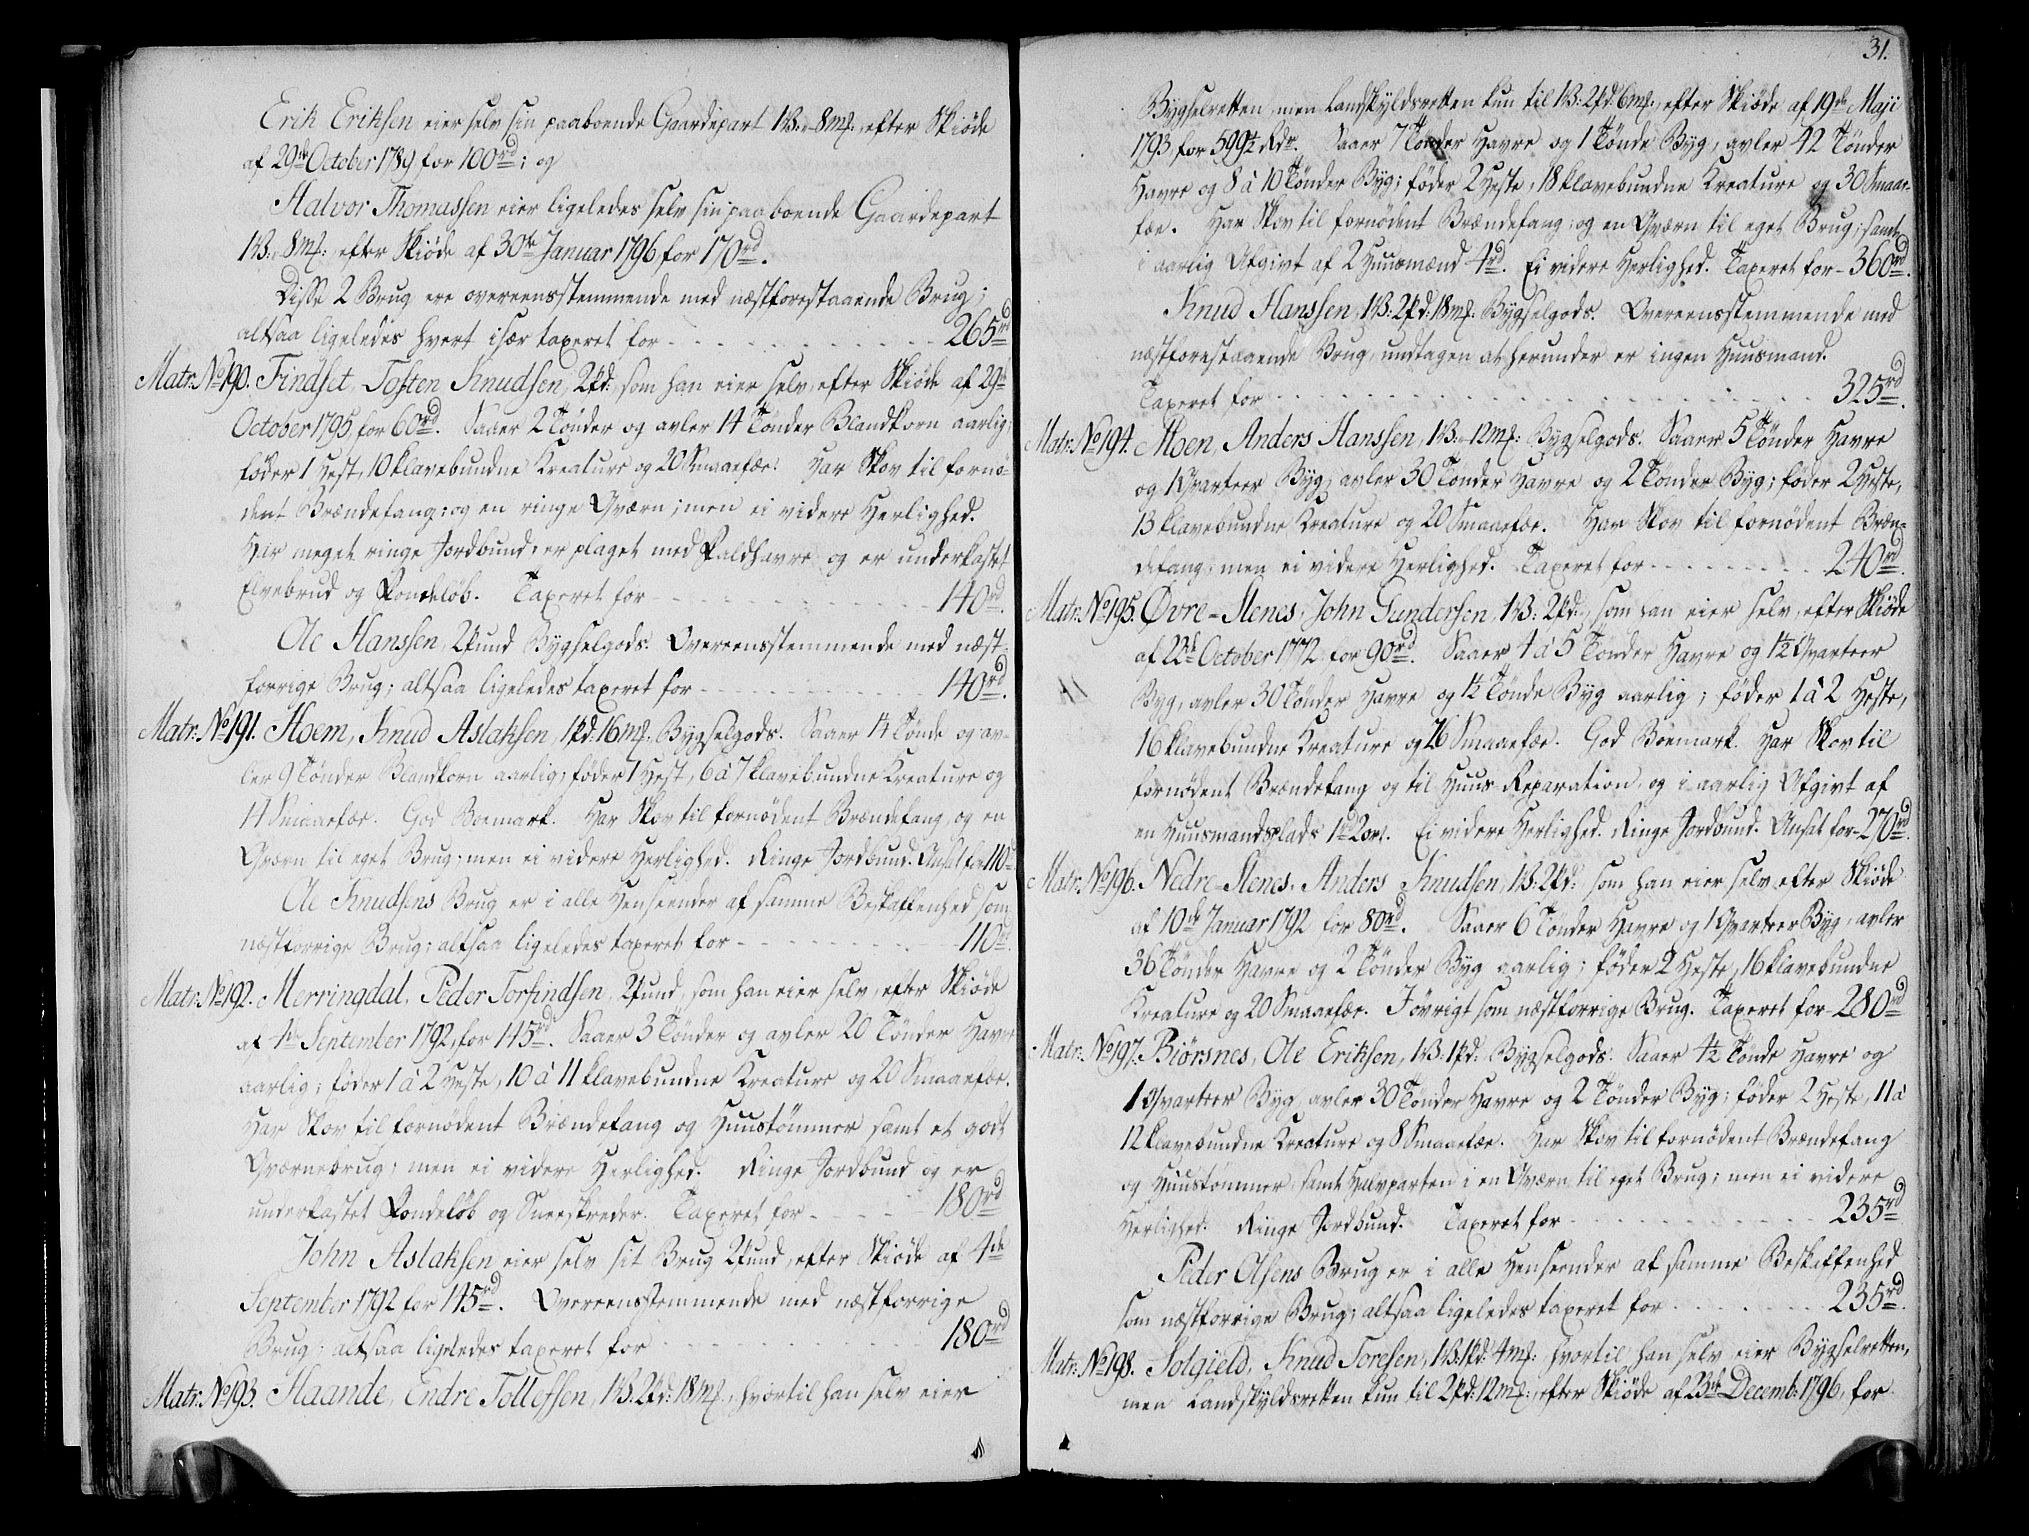 Erik Eriksen eier selv sin paaboende Gaardepart 1 W: 8 mf: efter Skiöde
af 29de October 1789 for 100rd; og
Halvor Thomassen eier ligeledes selv sin paaboende Gaardepart
1 W: 8 mf: efter Skiöde af 30te Januar 1796 for 170rd.
Disse 2 Brug ere overeensstemmende med næstforestaaende Brug;
altsaa ligeledes hvert især taxeret for - - - 265rd
Matr: No 190. Findset, Tosten Knudsen, 2 pd: som han eier selv, efter Skiöde af 29de
October 1795 for 60rd. Saaer 2 Tönder og avler 14 Tönder Blandkorn aarlig;
föder 1 Hest, 10 klavebundne Kreature og 20 Smaaefæe. Har Skov til fornö-
dent Brændefang; og en ringe Qværn; men ei videre Herlighed.
Har meget ringe Jordbund, er plaget med Faldhavre og er underkastet
Elvebrud og Fondelöb. Taxeret for - - - 140rd.
Ole Hanssen, 2 Pund Bygselgods. Overeensstemmende med næst-
forrige Brug; altsaa ligeledes taxeret for - - - 140rd.
Matr: No 191. Moem, Knud Aslaksen, 1 pd: 16 mf. Bygselgods. Saaer 1½ Tönde og av-
ler 9 Tönder Blandkorn aarlig; föder 1 Hest, 6 à 7 klavebundne Kreature og
14 Smaaefæe. God Boemark. Har Skov til fornödent Brændefang, og en
Qværn til eget Brug; men ei videre Herlighed. Ringe Jordbund. Ansat for 110rd
Ole Knudsens Brug er i alle Henseender af samme Beskaffenhed som
næstforrige Brug; altsaa ligeledes taxeret for - - - 110rd.
Matr: No 192. Merringdal, Peder Torfindsen, 2 Pund, som han eier selv, efter Skiöde
af 4de September 1792, for 145rd. Saaer 3 Tönder og avler 20 Tönder Havre
aarlig; föder 1 à 2 Heste, 10 à 11 klavebundne Kreature og 20 Smaaefæe.
Har Skov til fornödent Brændefang og Huustömmer samt et godt
Qværnebrug; men ei videre Herlighed. Ringe Jordbund og er
underkastet Fondelöb og Sneeskreder. Taxeret for - - - 180rd
John Aslaksen eier selv sit Brug 2 Pund, efter Skiöde af 4de
September 1792 for 145rd. Overeensstemmende med næstforrige
Brug; altsaa ligeledes taxeret for - - - 180rd
Matr: No 193. Haande, Endre Tollefsen, 1 W: 2 pd: 18 mf., hvortil han selv eier
31.
Bygselretten, men Landskyldsretten kun til 1 W: 2 pd: 6 mf., efter Skiöde af 19de Maji
1793, for 599½ Rdr. Saaer 7 Tönder Havre og 1 Tönde Byg, avler 42 Tönder
Havre og 8 à 10 Tönder Byg; föder 2 Heste, 18 klavebundne Kreature og 30 Smaae-
fæe. Har Skov til fornödent Brændefang; og en Qværn til eget Brug; samt
i aarlig Afgivt af 2 Huusmænd 4rd. Ei videre Herlighed. Taxeret for - 360rd.
Knud Hanssen, 1 W: 2 pd: 18 mf. Bygselgods. Overeensstemmende med
næstforestaaende Brug, undtagen at herunder er ingen Huusmand.
Taxeret for - - - 325rd.
Matr: No 194. Moen, Anders Hanssen, 1 W: 12 mf: Bygselgods. Saaer 5 Tönder Havre
og 1 Qvarteer Byg; avler 30 Tönder Havre og 2 Tönder Byg; föder 2 Heste,
13 klavebundne Kreature og 20 Smaaefæe. Har Skov til fornödent Bræn-
defang; men ei videre Herlighed. Taxeret for - - - 240rd.
Matr: No 195. Øvre-Stenes, John Gundersen, 1 W: 2 pd:, som han eier selv, efter Skiöde
af 23de October 1772 for 90rd. Saaer 4 à 5 Tönder Havre og 1½ Qvarteer
Byg, avler 30 Tönder Havre og 1½ Tönde Byg aarlig; föder 1 à 2 Heste,
16 klavebundne Kreature og 26 Smaaefæe. God Boemark. Har Skov til
fornödent Brændefang og til Huus-Reparation, og i aarlig Afgivt af
en Huusmandsplads 1rd 2 ort. Ei videre Herlighed. Ringe Jordbund. Ansat for - 270rd.
Matr: No 196. Nedre-Stenes, Anders Knudsen, 1 W: 2 pd: som han eier selv, efter Skiöde
af 10de Januar 1792 for 80rd. Saaer 6 Tönder Havre og 1 Qvarteer Byg, avler
36 Tönder Havre og 2 Tönder Byg aarlig; föder 2 Heste, 16 klavebundne
Kreature og 20 Smaaefæe. I övrigt som næstforrige Brug. Taxeret for - 280rd
Matr: No 197. Biörsnes, Ole Eriksen, 1 W: 1 pd: Bygselgods. Saaer 4½ Tönde Havre og
1 Qvarteer Byg, avler 30 Tönder Havre og 2 Tönder Byg; föder 2 Heste, 11 à
12 klavebundne Kreature og 8 Smaaefæe. Har Skov til fornödent Brændefang
og Huustömmer, samt Halvparten i en Qværn til eget Brug; men ei videre
Herlighed. Ringe Jordbund. Taxeret for - - - 235rd
Peder Olsens Brug er i alle Henseender af samme Beskaffenhed
som næstforrige Brug; altsaa ligeledes taxeret for - - - 235rd.
Matr: No 198. Solgield, Knud Toresen, 1 W: 1 pd: 4 mf: hvortil han selv eier Bygselretten,
men Landskyldsretten kun til 2 pd: 12 mf:, efter Skiöde af 23de Decemb: 1796, for